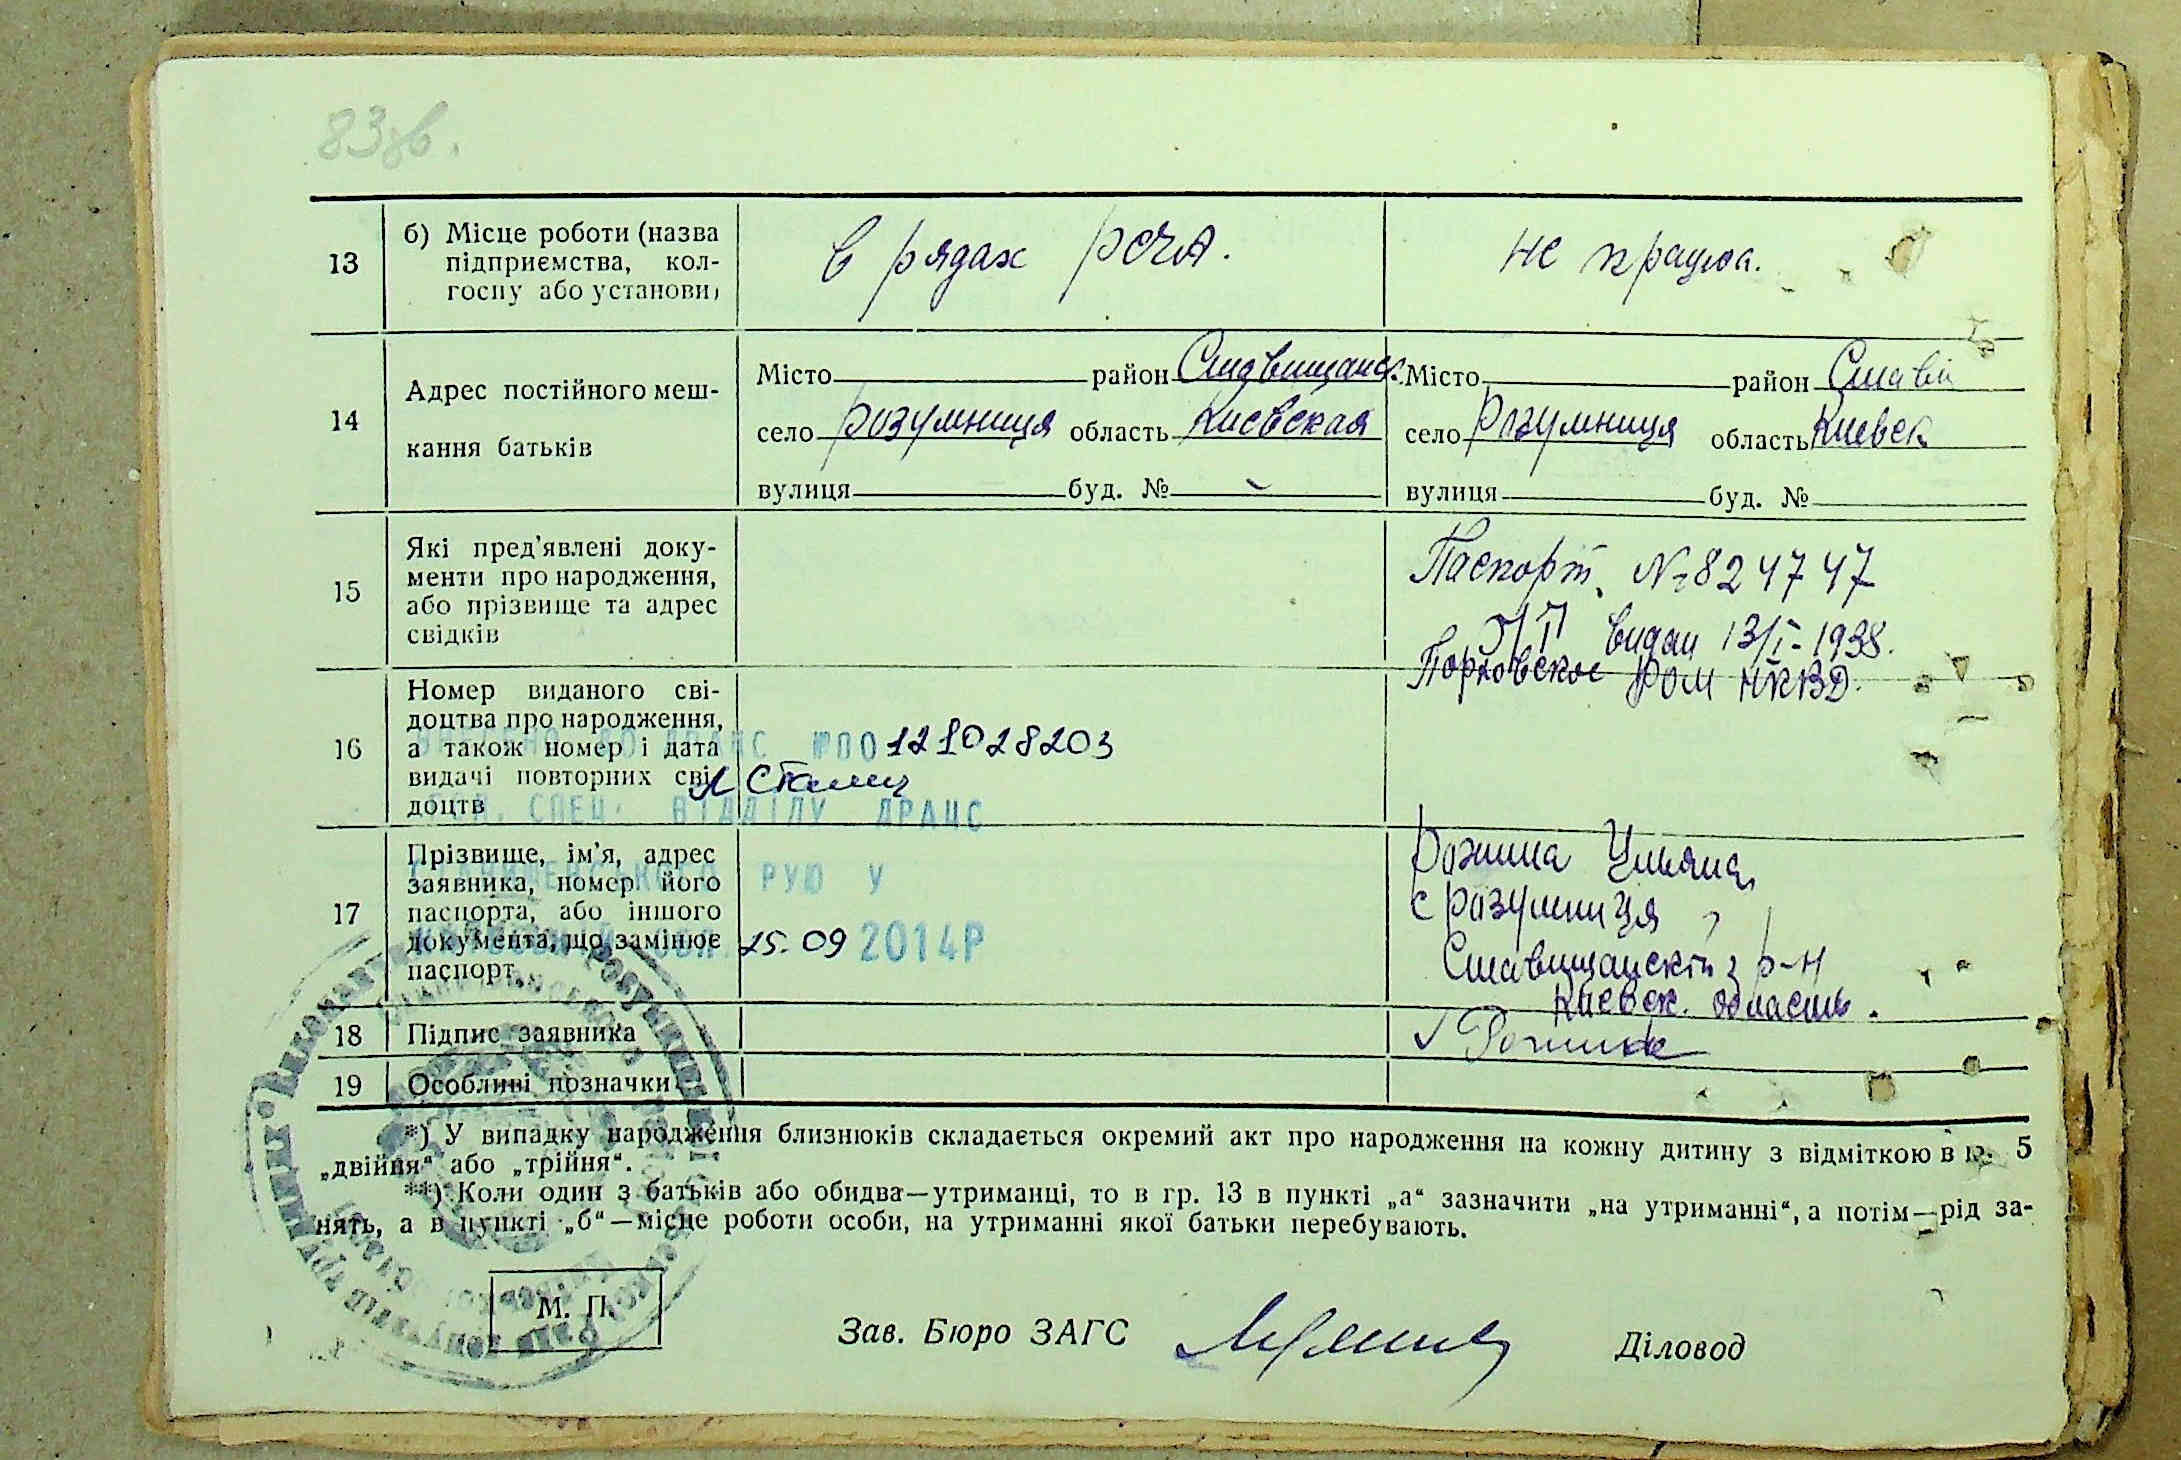 83зв.
13
б) Місце роботи (назва
підприємства, кол-
госпу або установи)
в рядах РСЧА.
не працюа.
14
Адрес постійного меш-
кання батьків
Місто район Ставищанс.
село Розумниця область Киевская
вулиця буд. №
Місто район Ставищ
село Розумниця область Киевск
вулиця буд. №
15
Які пред'явлені доку-
менти про народження,
або прізвище та адрес
свідків
Паспорт № 824747
видан 13/I-1938.
РОМ НКВД.
16
Номер виданого сві-
доцтва про народження,
а також номер і дата
видачі повторних сві-
доцтв
ДРАЦС №ПО 121028203
СПЕЦ. ВІДДІЛУ ДРАЦС
17
Прізвище, ім'я, адрес
заявника, номер його
паспорта, або іншого
документа, що замінює
паспорт
СТАВИЩЕНСЬКОГО РУЮ У
25.09 2014Р
Ульяна,
с Розумниця
Ставищанский р-н
Киевск. область.
18
Підпис заявника
19
Особливі позначки
*) У випадку народження близнюків складається окремий акт про народження на кожну дитину з відміткою в гр. 5
„двійня“ або „трійня“.
**) Коли один з батьків або обидва—утриманці, то в гр. 13 в пункті „а“ зазначити „на утриманні“, а потім—рід за-
нять, а в пункті „б“—місце роботи особи, на утриманні якої батьки перебувають.
М. П.
Зав. Бюро ЗАГС
Діловод